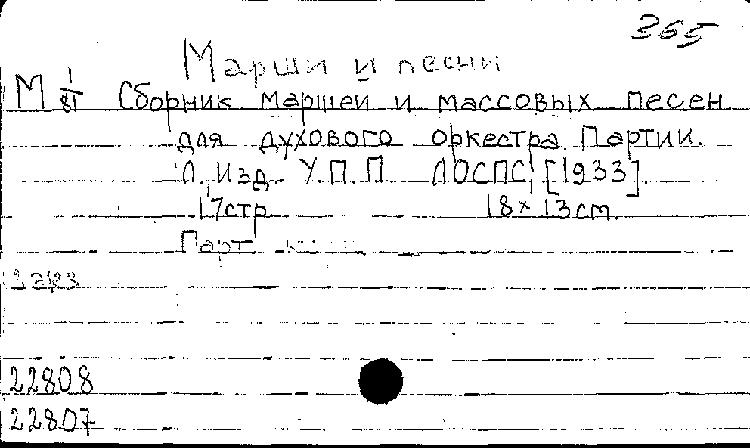 365
Марши и песни
М 1/81 Сборник маршей и массовых песен
для духового оркестра. Партии.
Л. Изд. У.П.П. ЛОСПС, [1933].
17стр 18×13см.
Парт.
2 экз
22808
22807